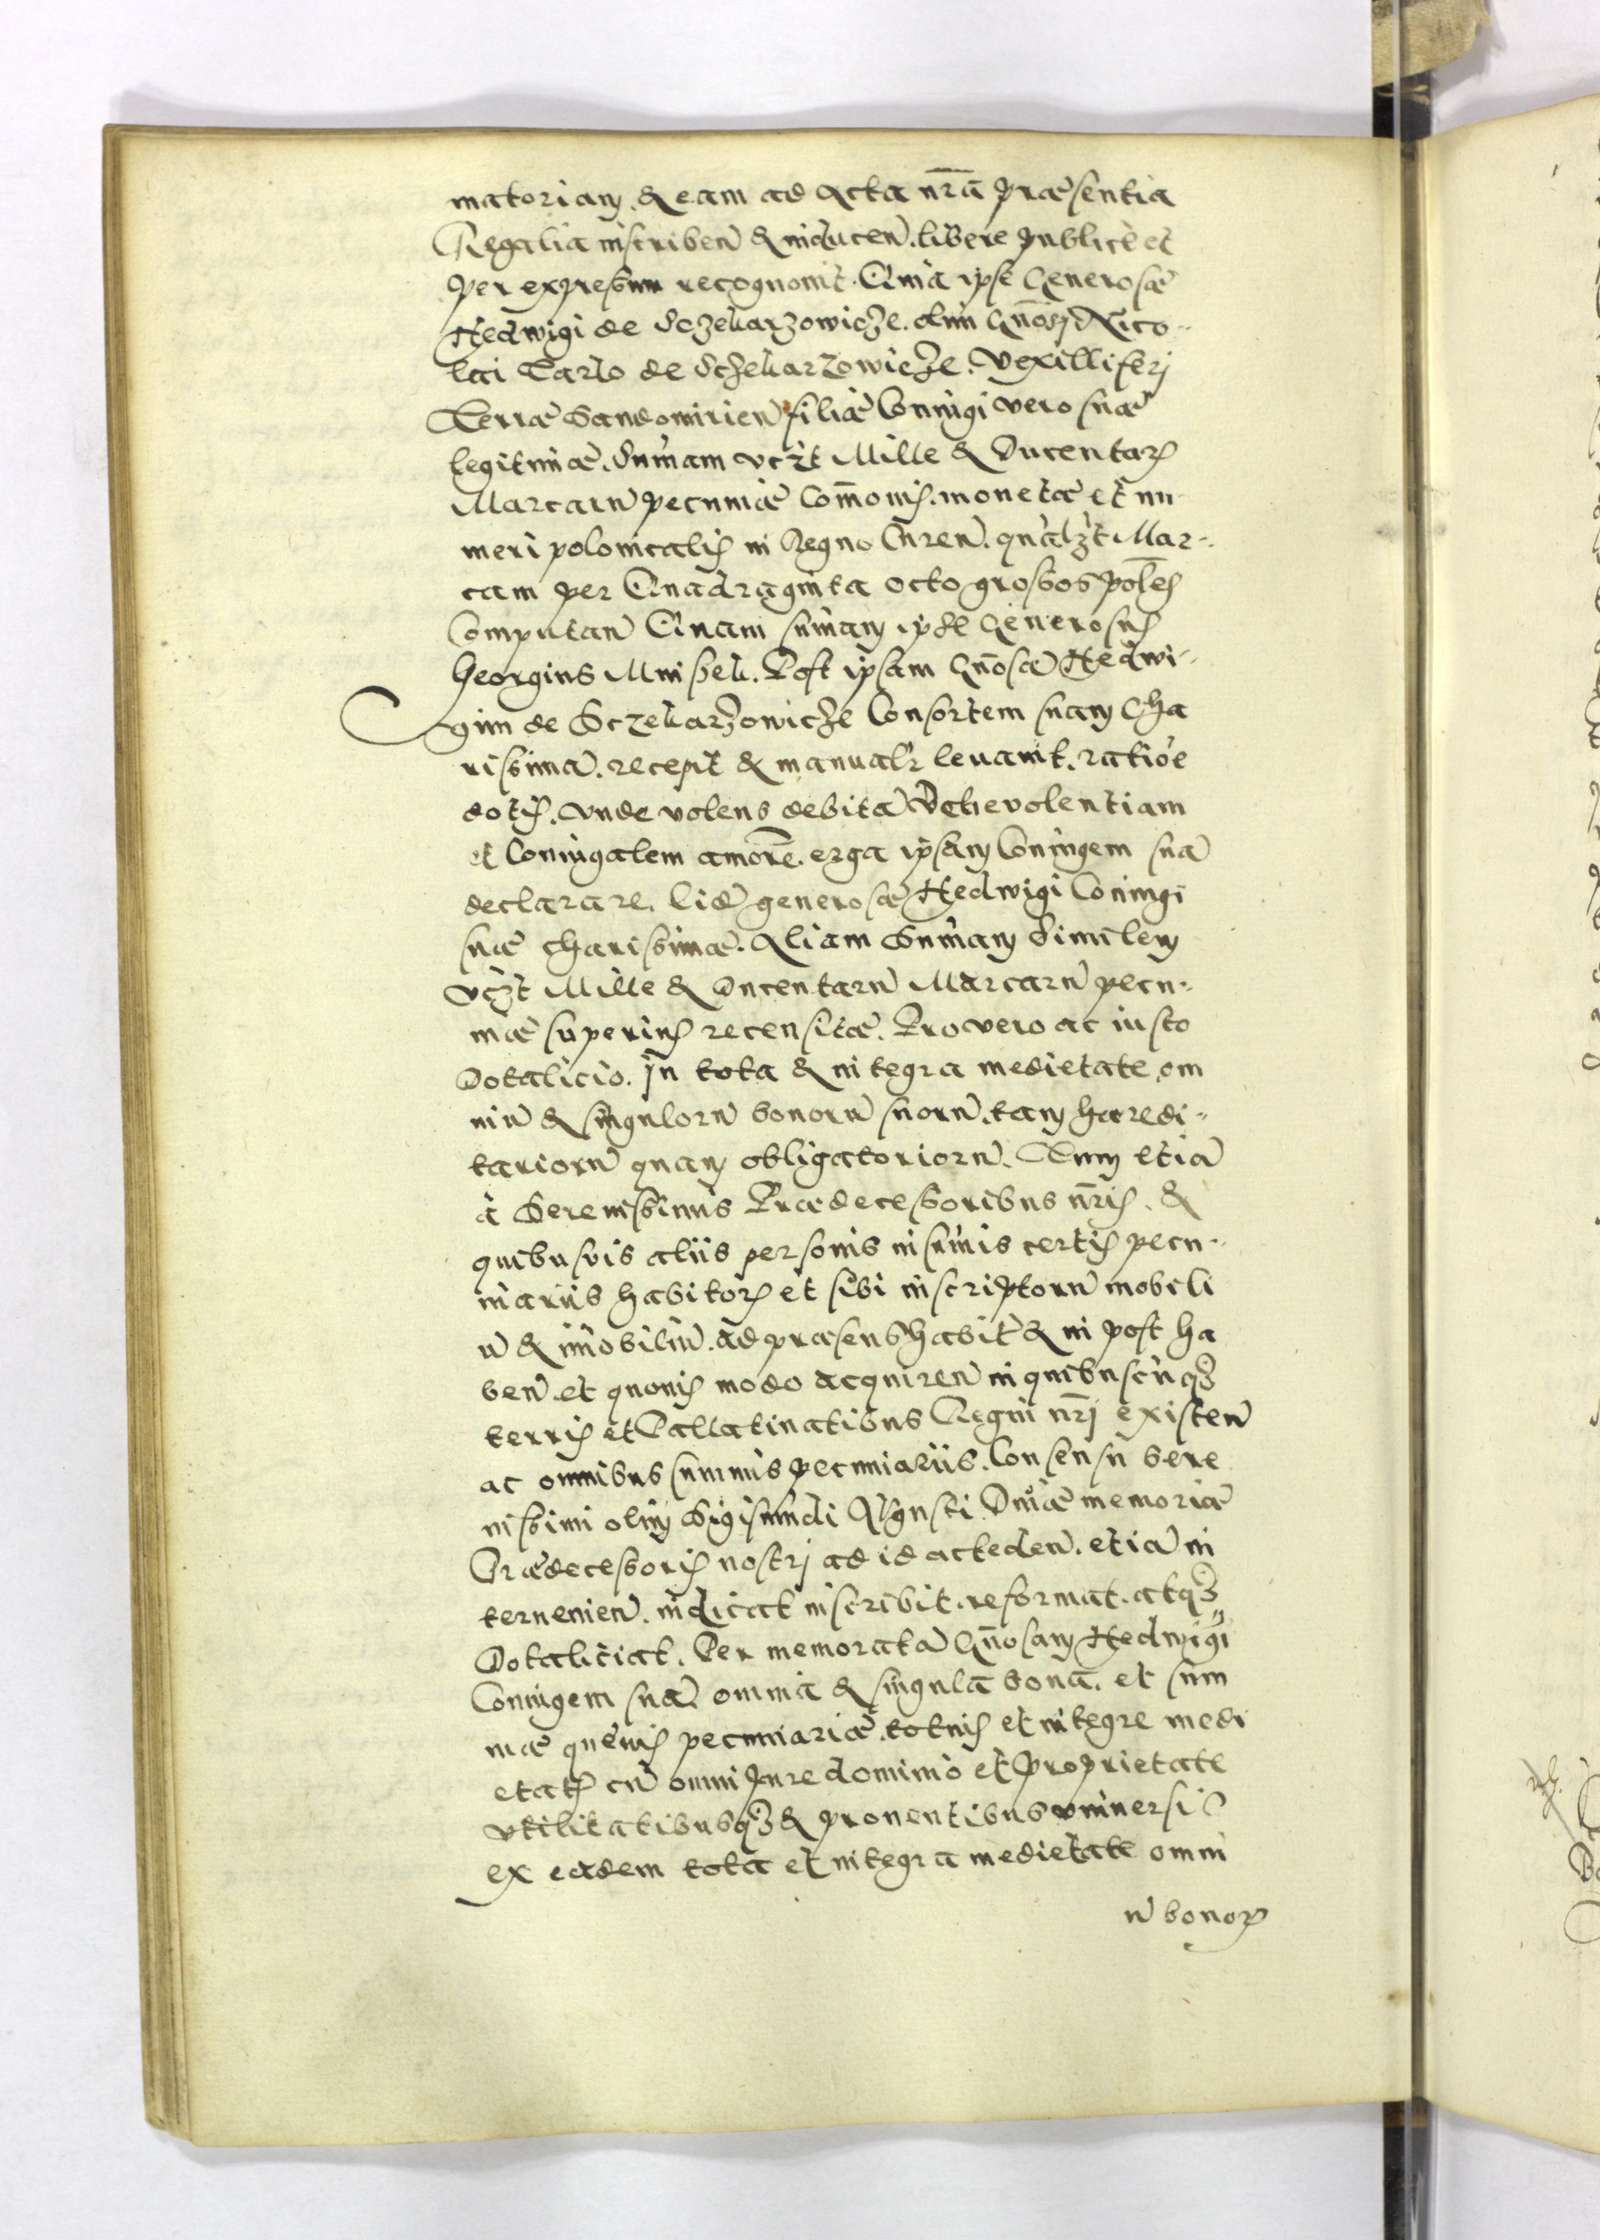 matoriam. & eam ad Acta nr̄a præsentia
Regalia inscriben̄ & inducen̄. libere publicè et
per expressum recognouit. Quia ipse Generosæ
Hedwigi de Sczekarzowicze. olim Gn̄osj Nico-
lai Tarlo de Sczekarzowicze. Vexilliferj
Terræ Sandomirien̄ filiæ Coniugi vero suæ
legitimæ. Sum̄am vcȥt Mille & Ducentarꝫ
Marcarū pecuniæ Com̄onis. monetæ et nu
meri polonicalis in Regno Curen̄. qualȥt Mar-
cam per Quadraginta octo grossos pol̄es
Computan̄ Quam sum̄am ipse Generosus
Georgius Mnissek. Post ipsam Gn̄osā Hedwi-
gim de Sczekarzowicze Consortem suam Cha
rissimā. recepit & manualr̄ leuauit. ratiōe
dotis. Vnde volens debitā Beneuolentiam
et Coniugalem amorē. erga ipsam Coniugem suā
declarare. Eidē generosæ Hedwigi Coniugi
suæ charissimæ. Aliam Sum̄am Similem
vcȥt Mille & Ducentarū Marcarū pecu-
niæ superius recensitæ. Pro vero ac iusto
Dotalicio. In tota & integra medietate om
niū & singulorū bonorū suorū. tam hæredi-
tariorū quam obligatoriorū. Tum etiā
à Serenissimis Prædecessoribus nr̄is. &
quibusuis aliis personis in sum̄is certis pecu-
niariis habitorꝫ et sibi inscriptorū mobili
ū & im̄obiliū. ad præsens habit & in post ha
ben̄ et quouis modo acquiren̄ in quibuscunqȝ
terris et Pallatinatibus Regni nr̄j existen̄
ac omnibus summis pecuniariis. Consensu Sere
nissimi olim Sigismundi Augusti Diuæ memoriæ
Prædecessoris nostrj ad id acceden̄. etiā in
teruenien̄. indicat inscribit. reformat. atqȝ
Dotalitiat. Per memoratā Gn̄osam Hedwigi
Coniugem suā. omnia & singula bona. et sum
mæ queuis pecuniariæ. totius et integre medi
etatis cū omni Jure dominio et proprietate
vtilitatibusqȝ & prouentibus vniuersis
ex eadem tota et integra medietate omni
ū bonorꝫ